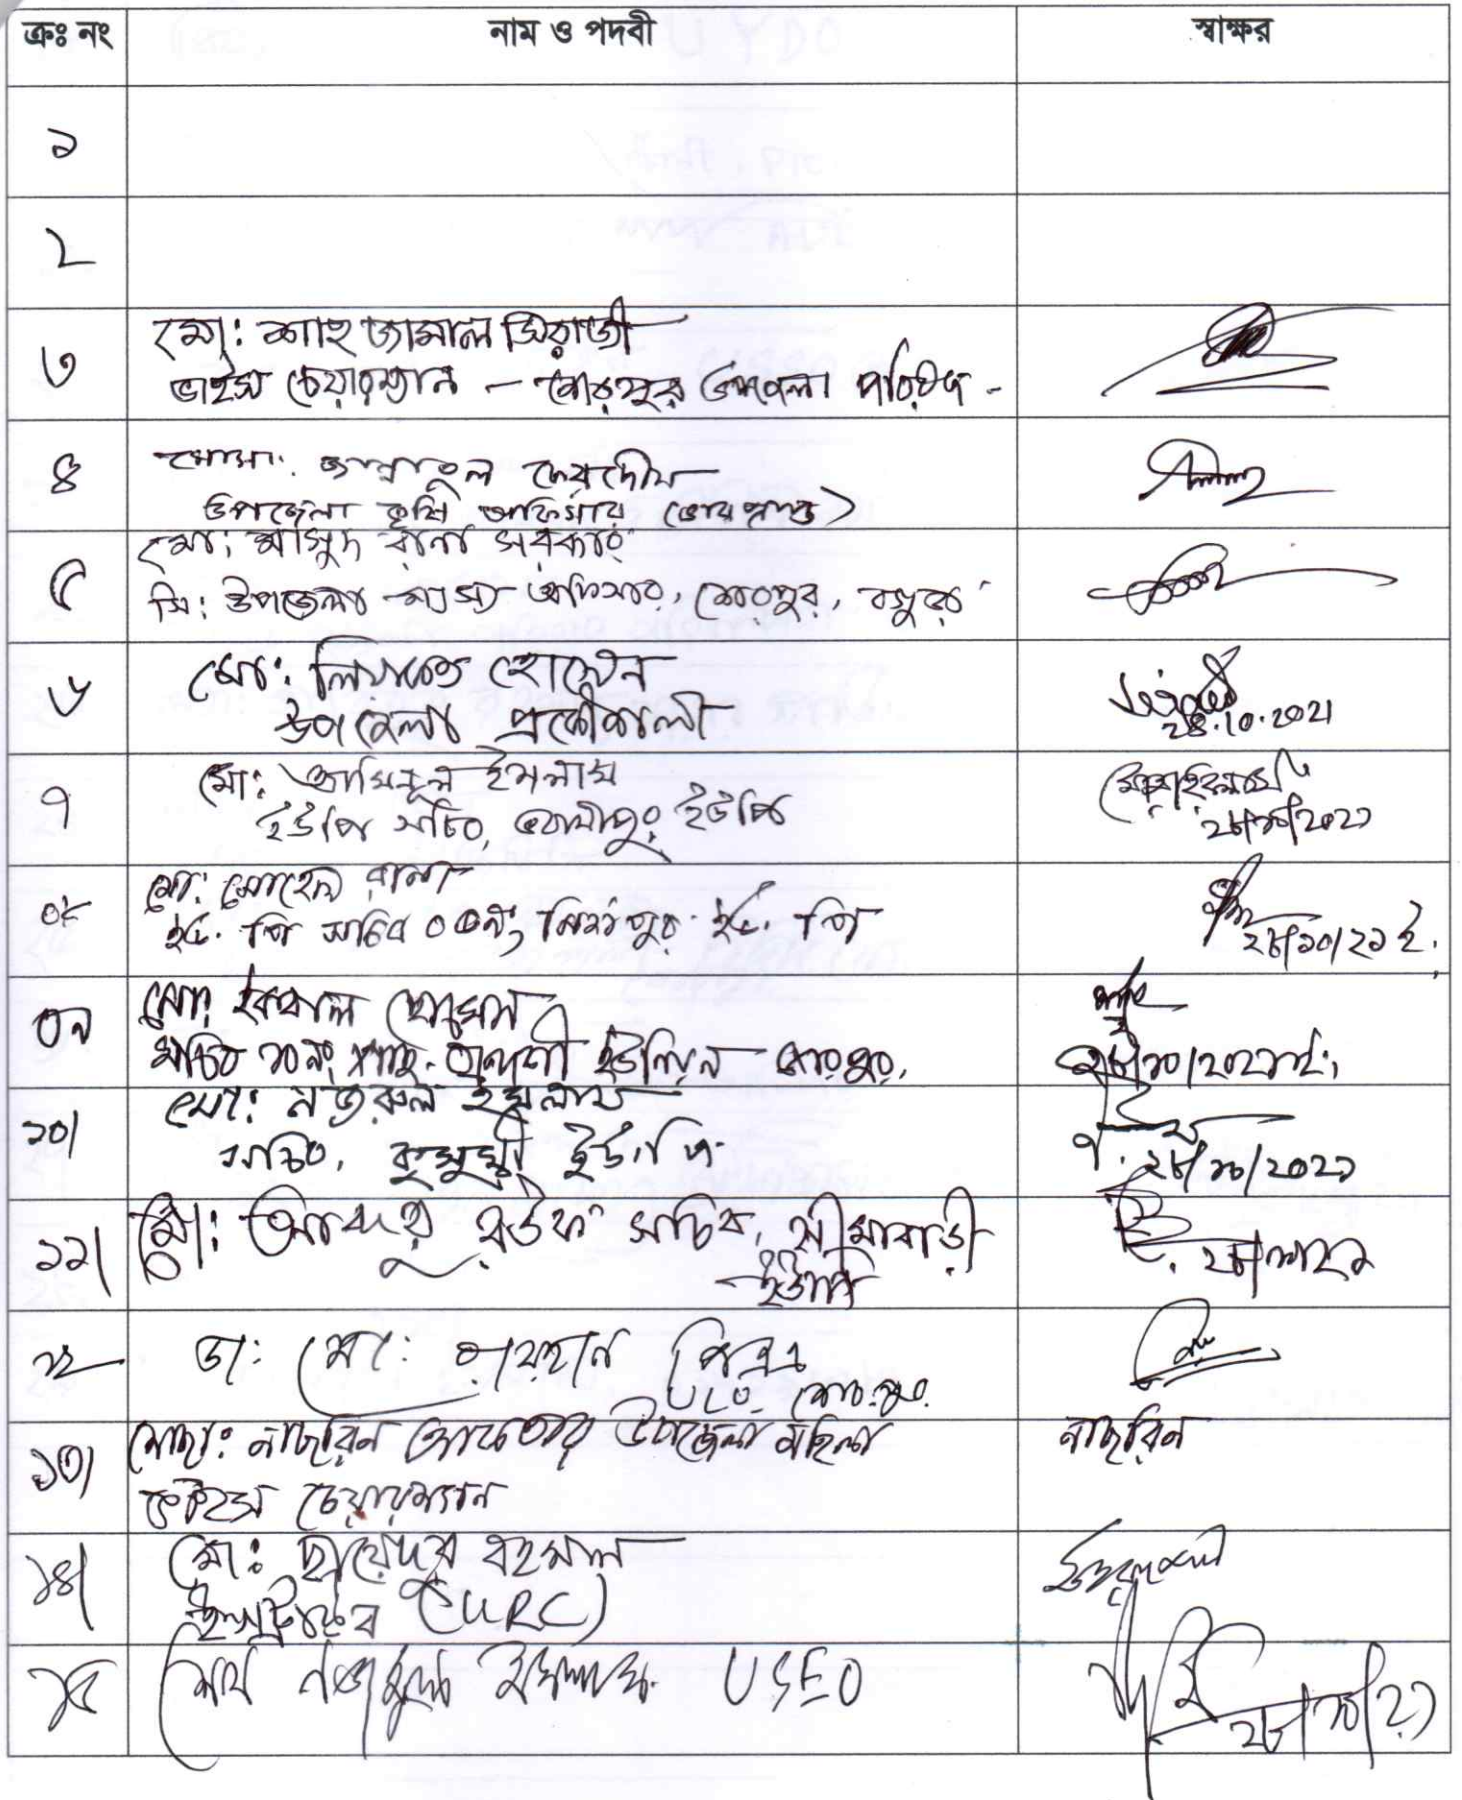 ক্রঃ নং নাম ও পদবী স্বাক্ষর
১
২
৩ মো: শাহ জামাল সিরাজী
ভাইস চেয়ারম্যান - শেরপুর উপজেলা পরিষদ -
৪ মোসা: জান্নাতুল ফেরদৌস
উপজেলা কৃষি অফিসার (ভারপ্রাপ্ত)
৫ মো: মাসুদ রানা সরকার
সি: উপজেলা মৎস্য অফিসার, শেরপুর, বগুড়া
৬ মো: লিয়াকত হোসেন
উপজেলা প্রকৌশলী 28.10.2021
৭ মো: আমিনুল ইসলাম
ইউপি সচিব, ভবানীপুর ইউপি ২৮/১০/২০২১
০৮ মো: সোহেল রানা
ইউ. পি সচিব ০৫নং মির্জাপুর ইউ. পি ২৮/১০/২১ ইং
০৯ মো: ইকবাল হোসেন
সচিব ১০নং শাহ-বন্দেগী ইউনিয়ন শেরপুর, ২৮/১০/২০২১ইং
১০। মো: নজরুল ইসলাম
সচিব, কুসুম্বী ইউ.পি ২৮/১০/২০২১
১১। মো: আবদুর রউফ সচিব, সীমাবাড়ী
ইউপি
১২ ডা: মো: রায়হান পিএএ
ULO শেরপুর
১৩। মোছা: নাছরিন আকতার উপজেলা মহিলা নাছরিন
ভাইস চেয়ারম্যান
১৪। মো: ছায়েদুর রহমান
ইন্সট্রাক্টর (URC)
১৫ শেখ নজমুল ইসলাম USEO ২৮/১০/২১